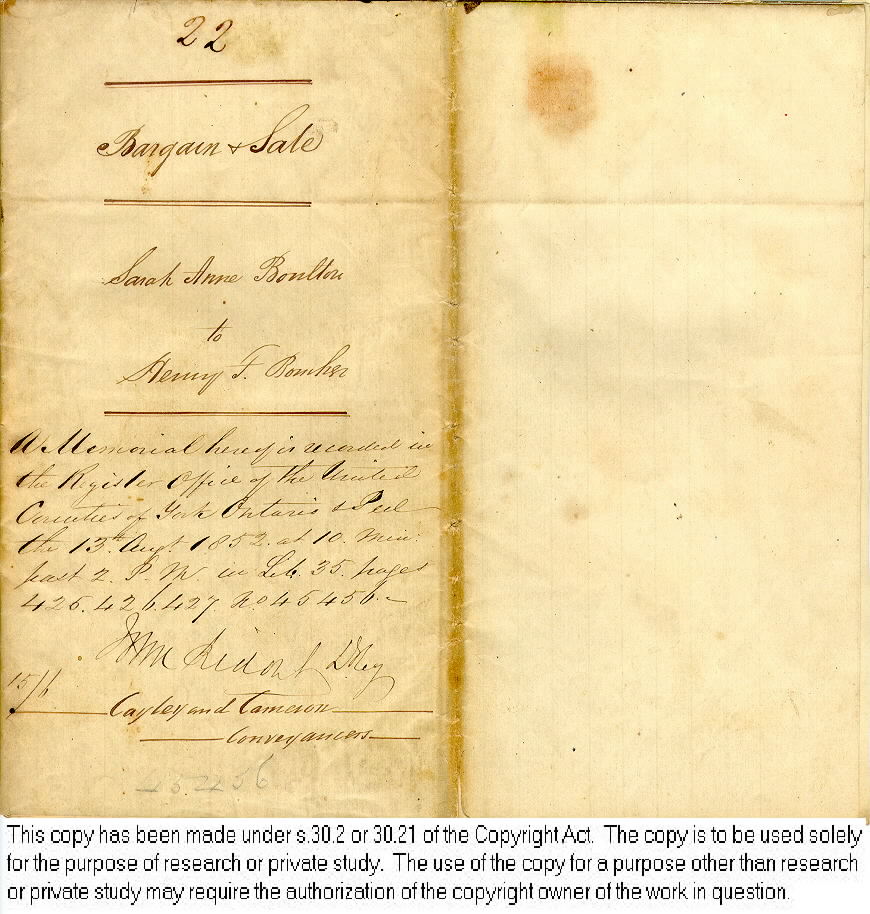 22
Bargain & Sale
Sarah Anne Boulton
to
Henry F. Bomher
A Memorial hereof is recorded in
the Register Office of the United
Counties of York Ontario & Peel
the 13th Augt 1852 at 10. Min.
past 2. P. M. in Lib. 35. pages
425. 426. 427 No 45456.
Ridout D Reg
15/6
Cayley and Cameron
Conveyancers
45456
This copy has been made under s.30.2 or 30.21 of the Copyright Act. The copy is to be used solely
for the purpose of research or private study. The use of the copy for a purpose other than research
or private study may require the authorization of the copyright owner of the work in question.